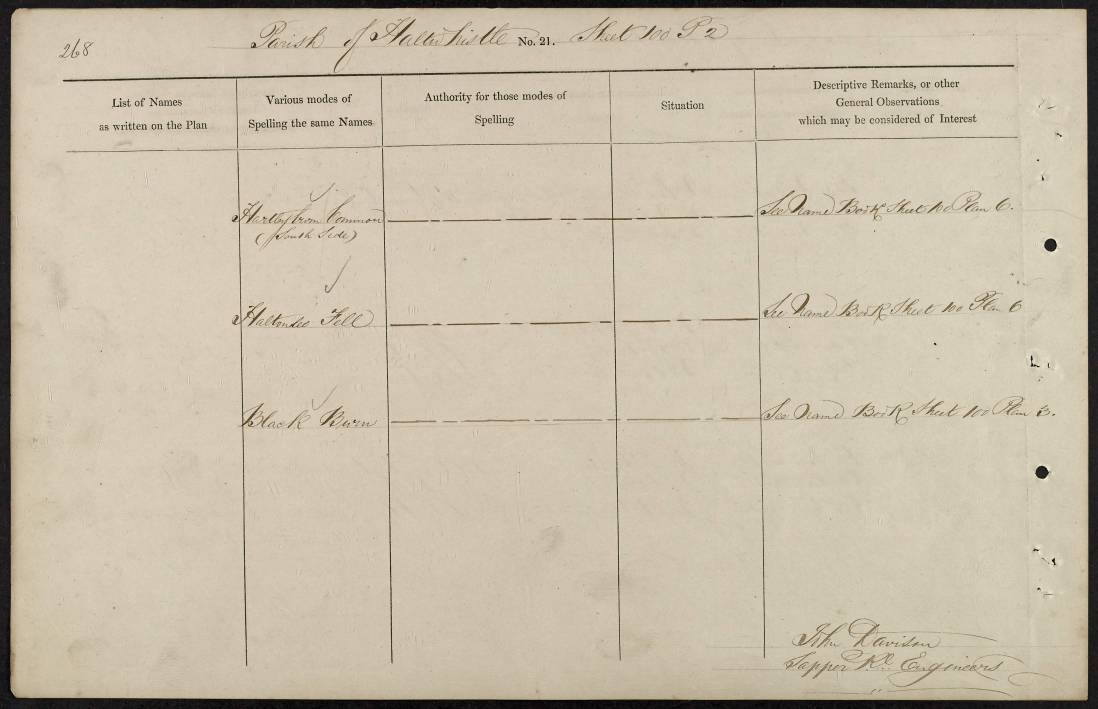 268
Parish of Haltwhistle No. 21. Sheet 100 P 2
List of Names
as written on the Plan
Various modes of
Spelling the same Names
Authority for those modes of
Spelling
Situation
Descriptive Remarks, or other
General Observations
which may be considered of Interest
Common See Name Book Sheet 100 Plan 6.
(South Side)
Fell See Name Book Sheet 100 Plan 6
Black Burn See Name Book Sheet 100 Plan 3.
John Davison
Sapper Rl. Engineers